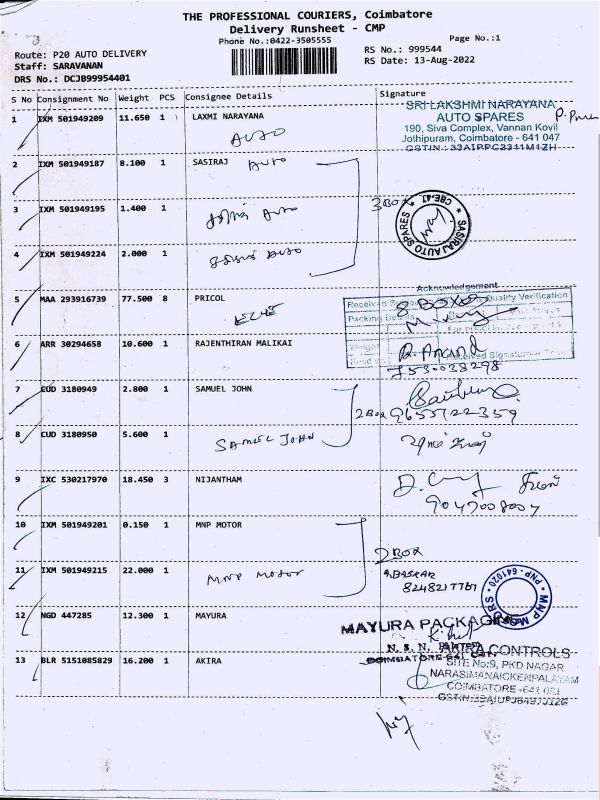 THE PROFESSIONAL COURIERS, Coimbatore
Delivery Runsheet - CMP
Phone No.:0422-3505555
Page No.:1
Route: P20 AUTO DELIVERY
RS No.: 999544
Staff: SARAVANAN
RS Date: 13-Aug-2022
DRS No.: DCJB99954401
S No Consignment No Weight PCS Consignee Details Signature
1 IXM 501949209 11.650 1 LAXMI NARAYANA
AUTO
SRI LAKSHMI NARAYANA
AUTO SPARES
190, Siva Complex, Vannan Kovil
Jothipuram, Coimbatore - 641 047
2 IXM 501949187 8.100 1 SASIRAJ Auto
3 IXM 501949195 1.400 1
Auto
3 BOX
SASIRAJ AUTO SPARES CBE-47
4 IXM 501949224 2.000 1
Auto
Acknowledgement
5 MAA 293916739 77.500 8 PRICOL
8 BOXES
Quality Verification
6 ARR 30294658 10.600 1 RAJENTHIRAN MALIKAI
R. Anand
7 CUD 3180949 2.800 1 SAMUEL JOHN
2 BOX 9655722359
8 CUD 3180950 5.600 1
SAMUEL JOHN
9 IXC 530217970 18.450 3 NIJANTHAM
9047008007
10 IXM 501949201 0.150 1 MNP MOTOR
2 BOX
11 IXM 501949215 22.000 1
MNP MOTOR
A. BASKAR
MNP MOTORS PNP-641020
12 NGD 447285 12.300 1 MAYURA
MAYURA PACKAGING
13 BLR 5151085829 16.200 1 AKIRA
AKIRA CONTROLS
SITE No:9, PKD NAGAR
NARASIMANAICKENPALAYAM
COIMBATORE-641 031